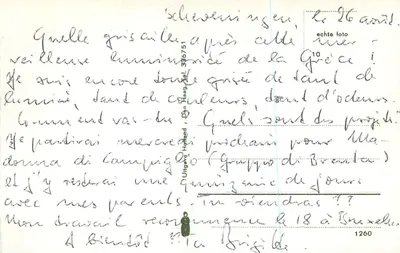 Scheveningen, le 26 août.
Quelle grisaille après cette mer-
veilleuse luminosité de la Grèce !
Je suis encore toute grisée de tant de
lumière, tant de couleurs, tant d'odeurs.
Comment vas-tu ? Quels sont des projets ?
Je partirai mercredi prochain pour Ma-
donna di Campiglio (Gruppo di Brenta)
et j'y resterai une quinzaine de jours
avec mes parents. Tu viendras ??
Mon travail recommence le 18 à Bruxelles
A bientôt !! Brigitte.
echte foto
10
1260